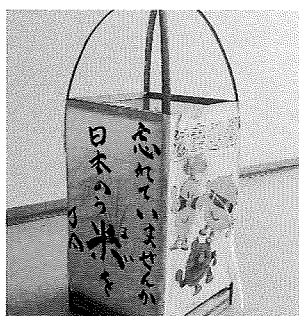 忘れていませんか
日本のう米を